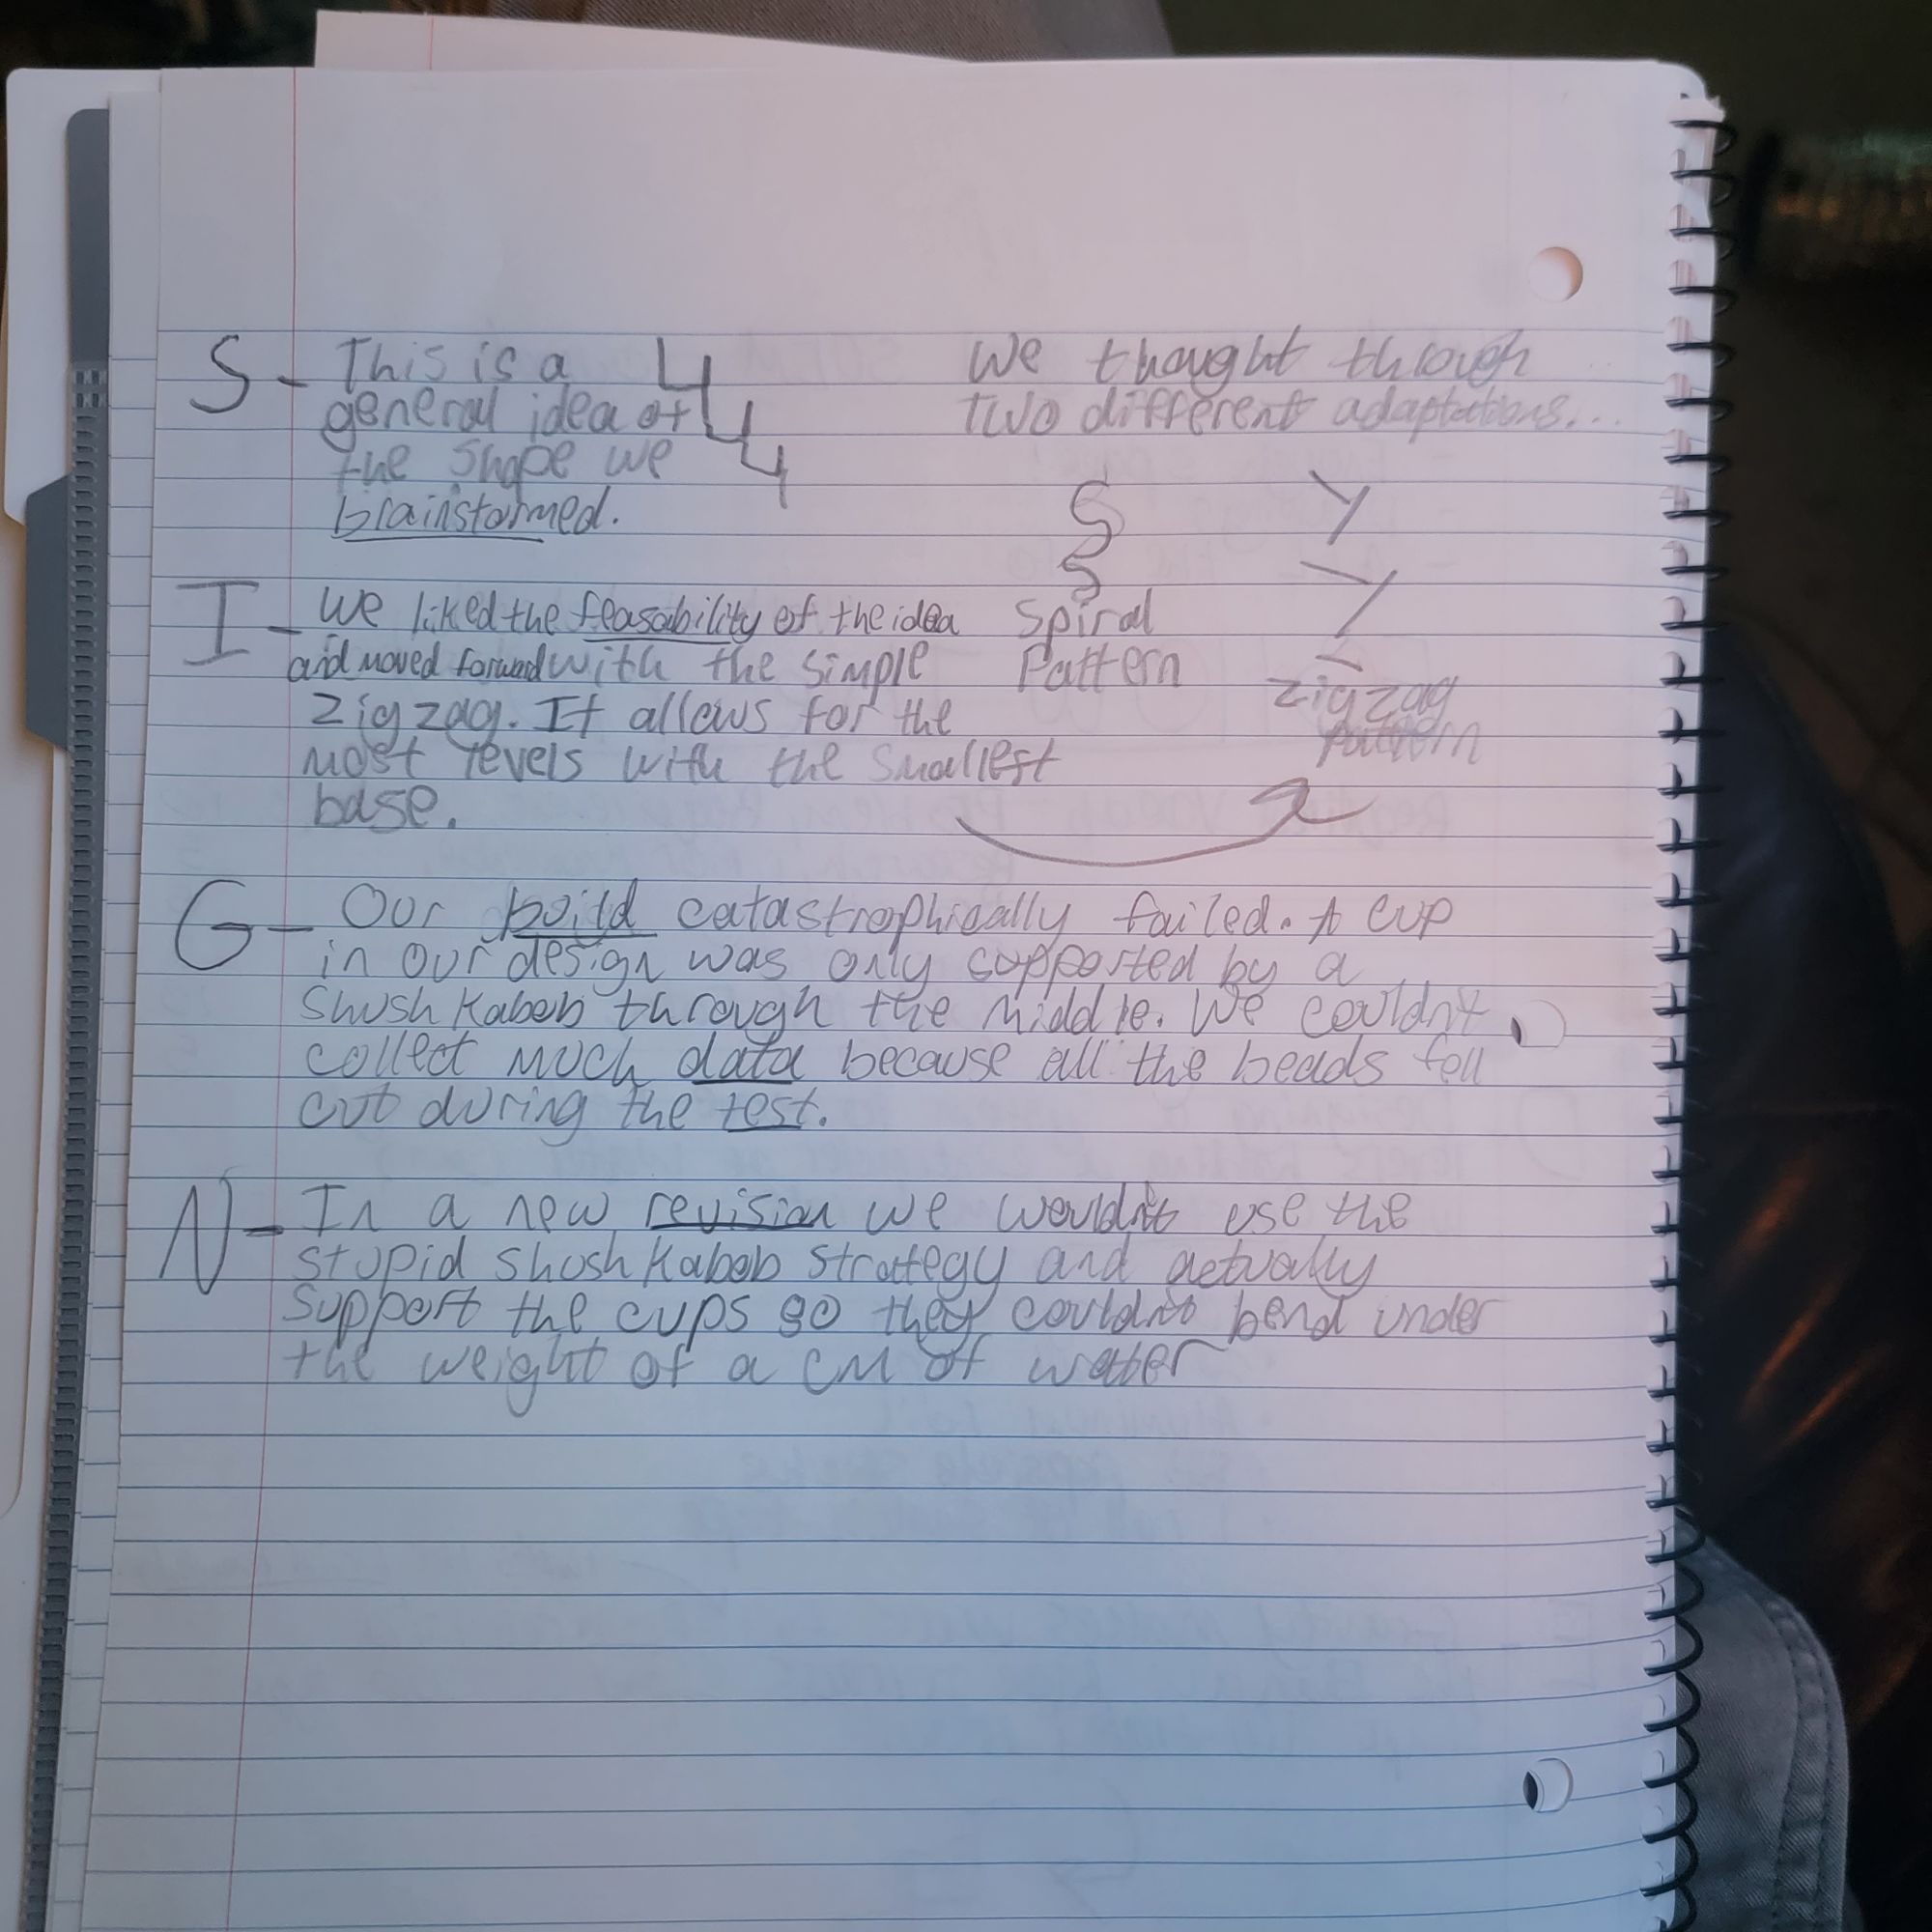 S - This is a
general idea of
the shape we
brainstormed.
We thought through
two different adaptations...
Spiral
Pattern
zigzag
pattern
I - We liked the feasability of the idea
and moved forward with the simple
zigzag. It allows for the
most levels with the smallest
base.
G - Our build catastrophically failed. A cup
in our design was only supported by a
Shush Kabob through the middle. We couldn't
collect much data because all the beads fell
out during the test.
N - In a new revision we wouldn't use the
stupid shush Kabob strategy and actually
support the cups so they couldn't bend under
the weight of a cm of water